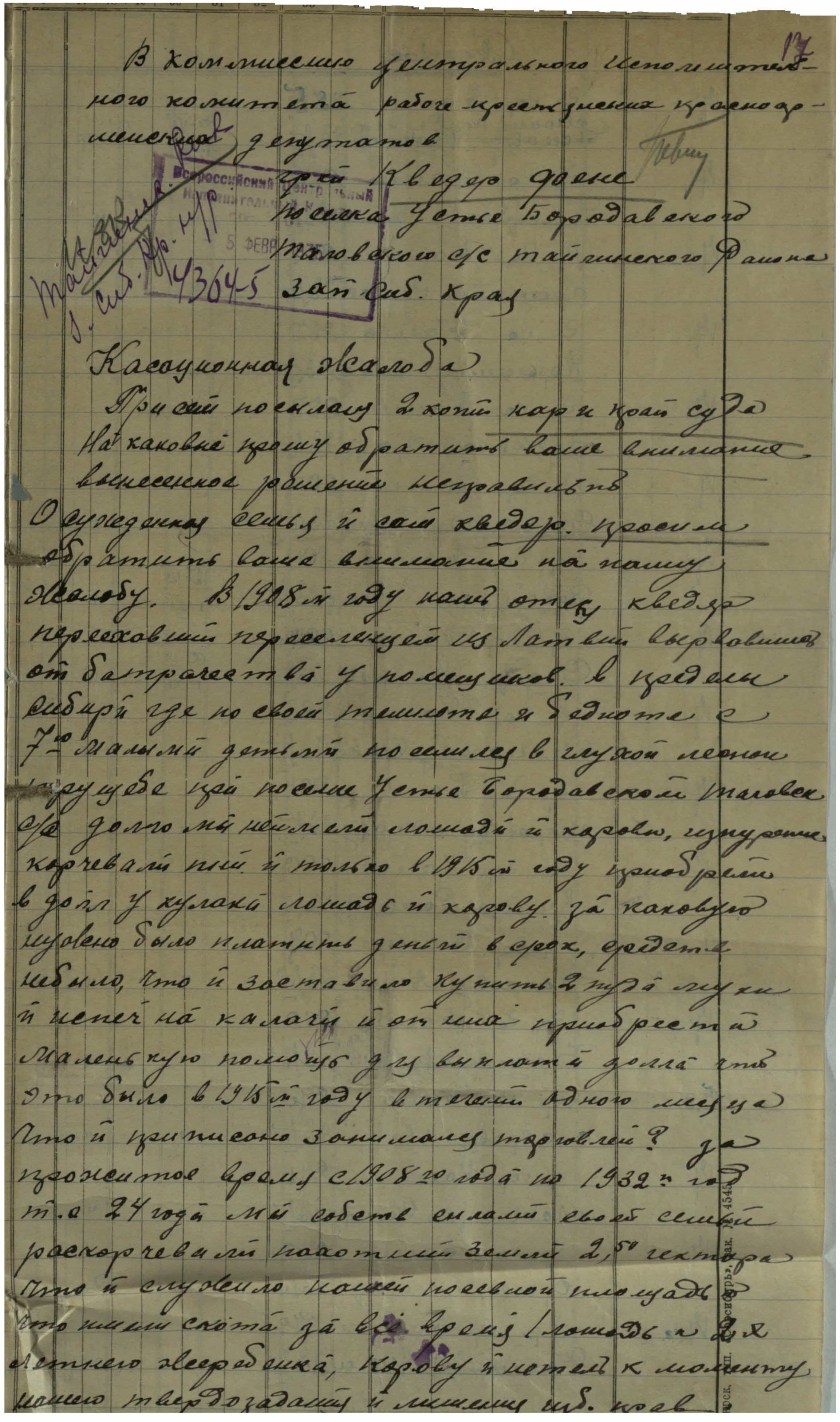 17
В коммиссию центрального исполнитель-
ного комитета рабоче крестьянских красноар-
мейских депутатов
гр-на Кведер
Всероссийский Центральный
поселка Устье Бородавского
5 ФЕВР
Таловского с/с тайгинского Района
4364-5
Зап Сиб. края
Касационная жалоба
При сем посылаю 2 копии нар и край суда
На каковые прошу обратить ваше внимание
вынесенное решение неправильно
Осужденная семья и сам кведер. просим
обратить ваше внимание на нашу
жалобу. В 1908 м году наш отец кведер
переехавший переселенцем из Латвии вырвавшись
от батрачества у помещиков. в пределы
сибири где по своей темноте и бедноте с
7ю малыми детьми поселился в глухой лесной
трущебе при поселке Устье Бородавском таловск
с/с долго мы неимели лошади и коровы, изнуренно
корчевали пни и только в 1915 м году приобрели
в долг у кулака лошадь и корову за каковую
нужно было платить деньги в срок, средств
небыло, что и заставило купить 2 пуда муки
и испечь на калачи и от них приобрести
маленькую помощь для выплаты долга что
это было в 1915 м году в течении одного месяца
что и приписано занимался торговлей? за
прожитое время с 1908 го года по 1932 й год
т.е 24 года мы собств силами своей семьи
раскорчевали пахотной земли 2,50 гектара
что и служило нашей посевной площадью
что имели скота за все время 1 лошадь и 2 х
летнего жеребенка, корову и нетель к моменту
нашего твердозадания и лишения изб. прав